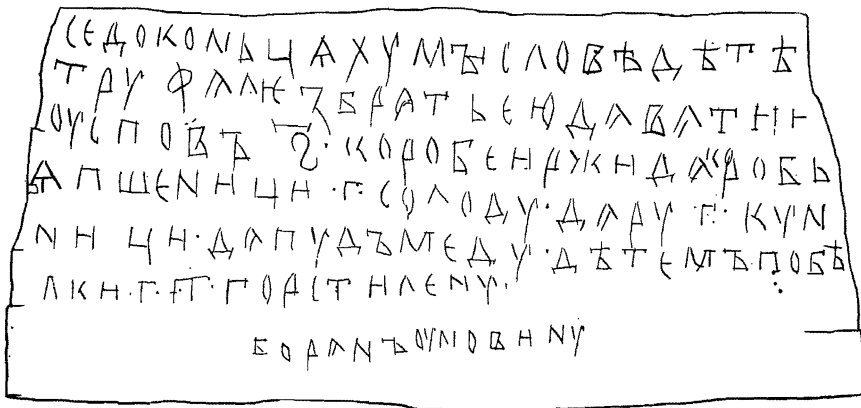 СЕДОКОНЬЦѦХУМЪІСЛОВѢДѢТѢ
ТРУФАЛЕЗБРАТЬЕЮДАВАТИИ
ОУСПОВЪ Ѕ҃·КОРОБЕИРЖИДАКОРОБЬ
ѦПШЕНИЦИ·Г·СОЛОДУ·ДАРУ·Г҃·КУН
НИЦИ·ДАПУДЪМЕДУ·ДѢТЕМЪПОБѢ
ЛКИ·Г·И·Г·ГОРСТИЛЕНУ·
БОРАНЪОУНОВИНУ